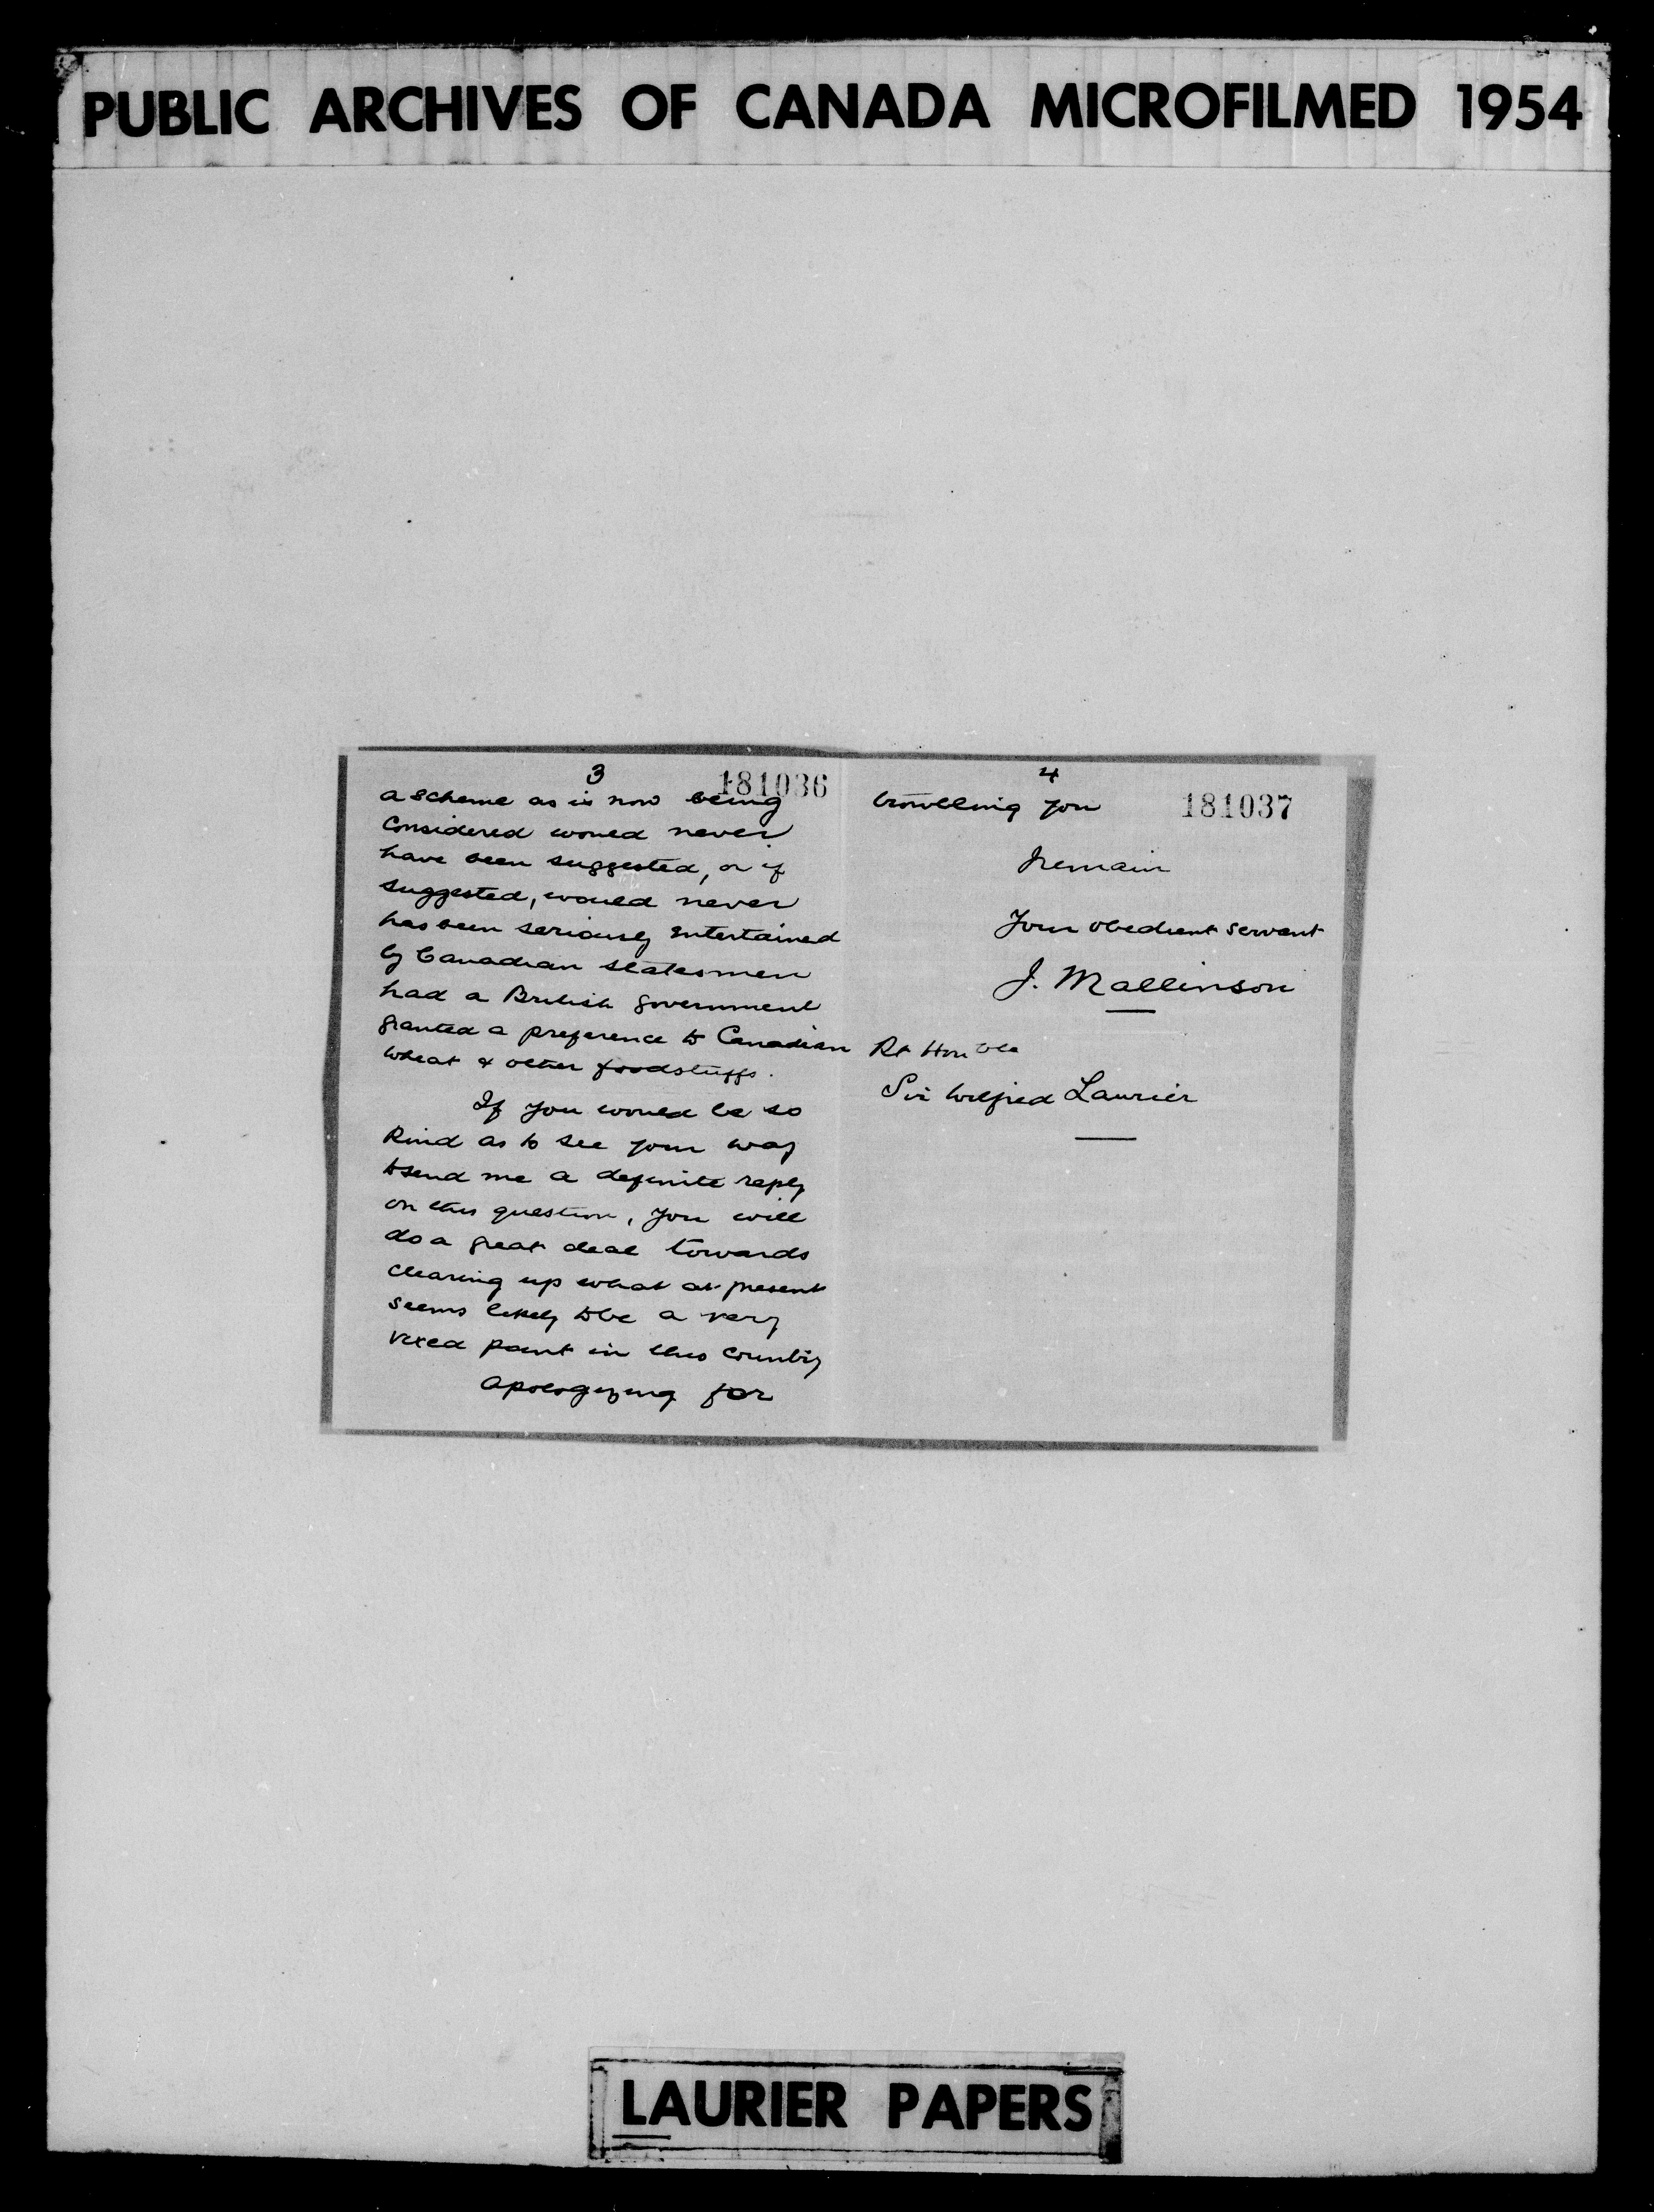 PUBLIC ARCHIVES OF CANADA MICROFILMED 1954
3
181036
a scheme as is now being
considered would never
have been suggested, or if
suggested, would never
has been seriously entertained
by Canadian statesmen
had a British government
granted a preference to Canadian
wheat & other foodstuffs.
If you would be so
kind as to see your way
to send me a definite reply
on this question, you will
do a great deal towards
clearing up what at present
seems likely to be a very
vexed point in this country
Apologizing for
4
181037
troubling you
I remain
Your obedient servant
J. Mallinson
Rt Honble
Sir Wilfred Laurier
LAURIER PAPERS